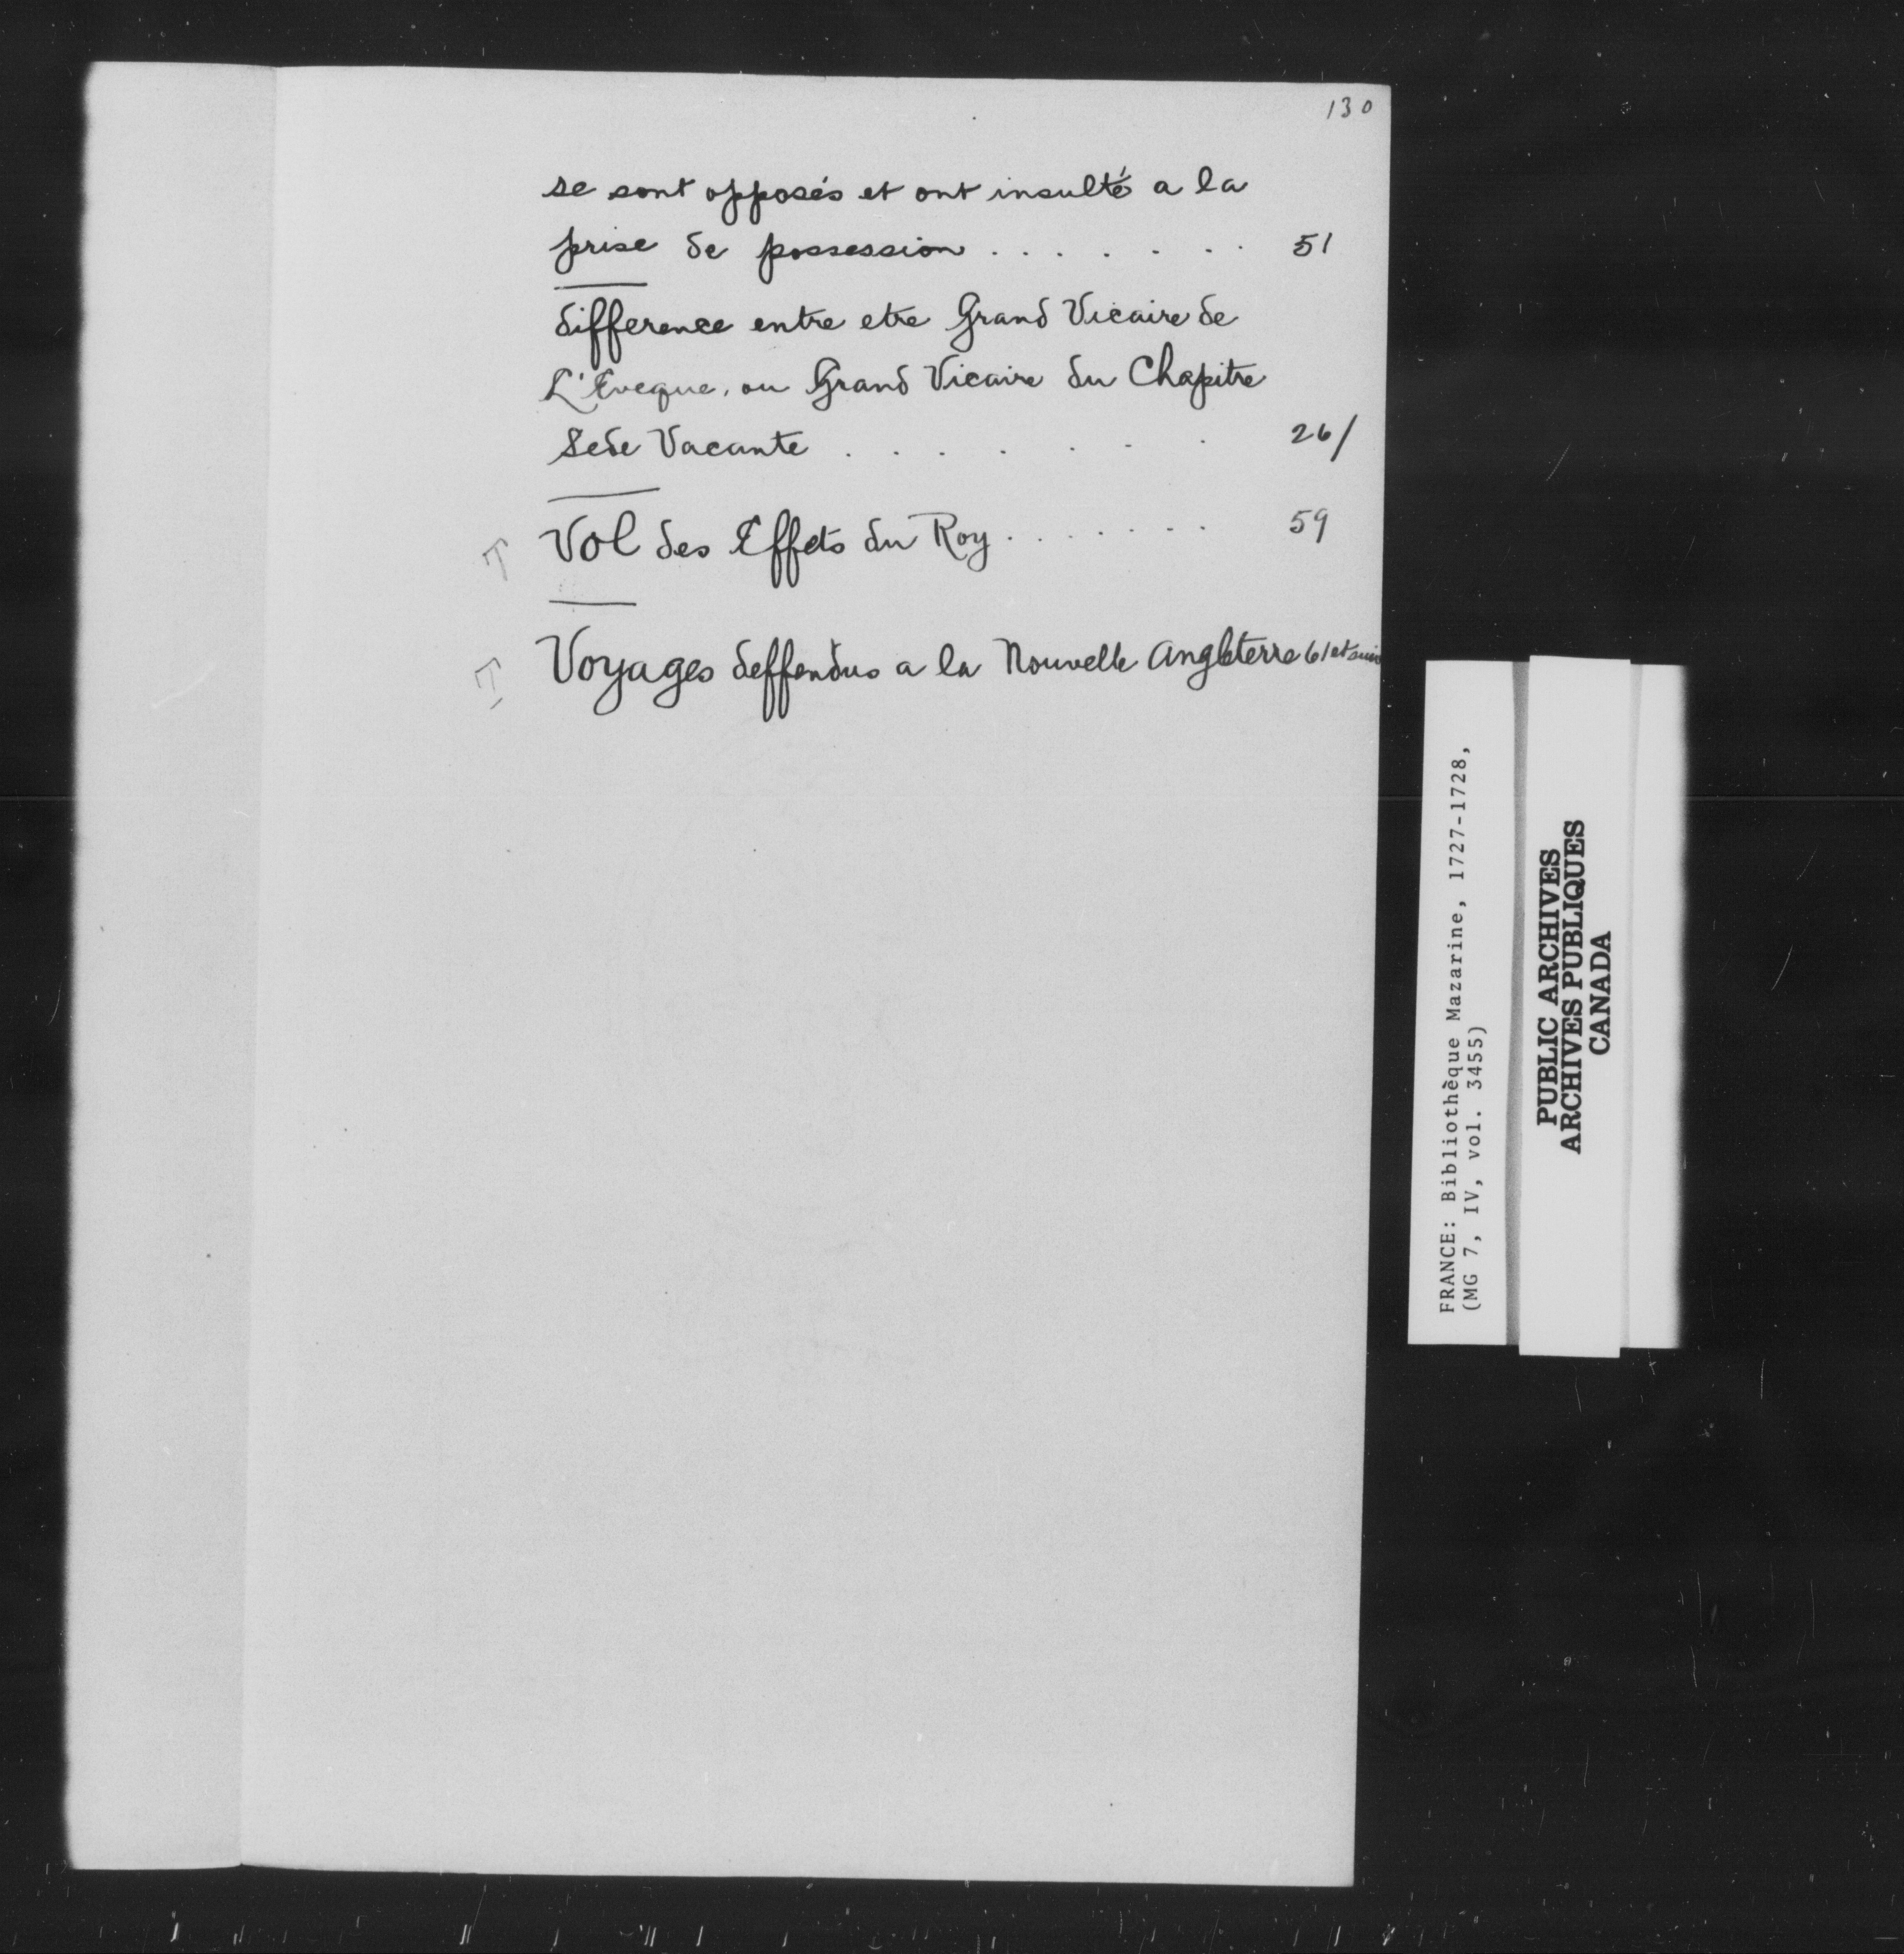 130
se sont opposés et ont insulté a la
prise de possession . . . . . . . 51
difference entre etre Grand Vicaire de
L'Eveque, ou Grand Vicaire du Chapitre
Sede Vacante . . . . . . . 26/
T Vol des Effets du Roy . . . . . . . 59
T Voyages deffendus a la Nouvelle Angleterre 61 et suiv
FRANCE: Bibliothèque Mazarine, 1727-1728,
(MG 7, IV, vol. 3455)
PUBLIC ARCHIVES
ARCHIVES PUBLIQUES
CANADA